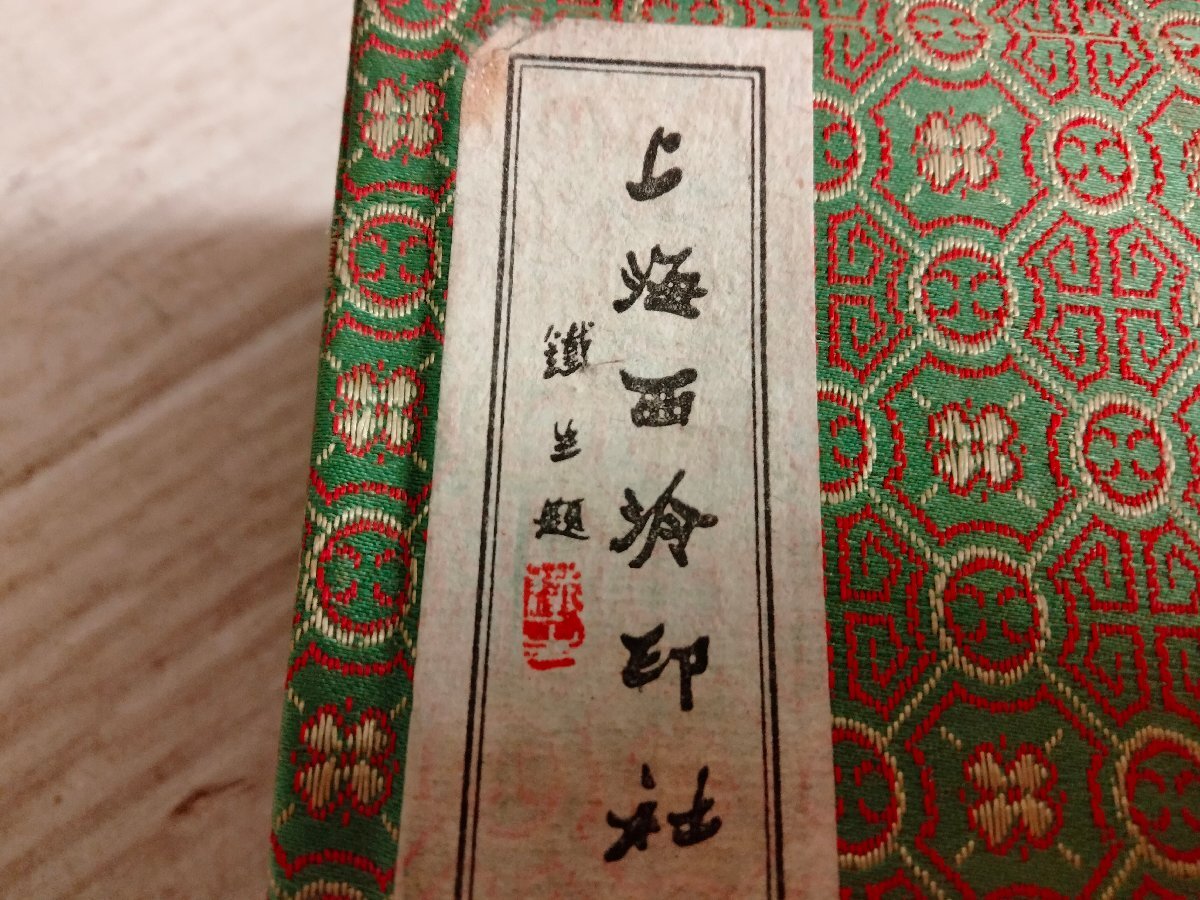 上海西泠印社
鐵生題